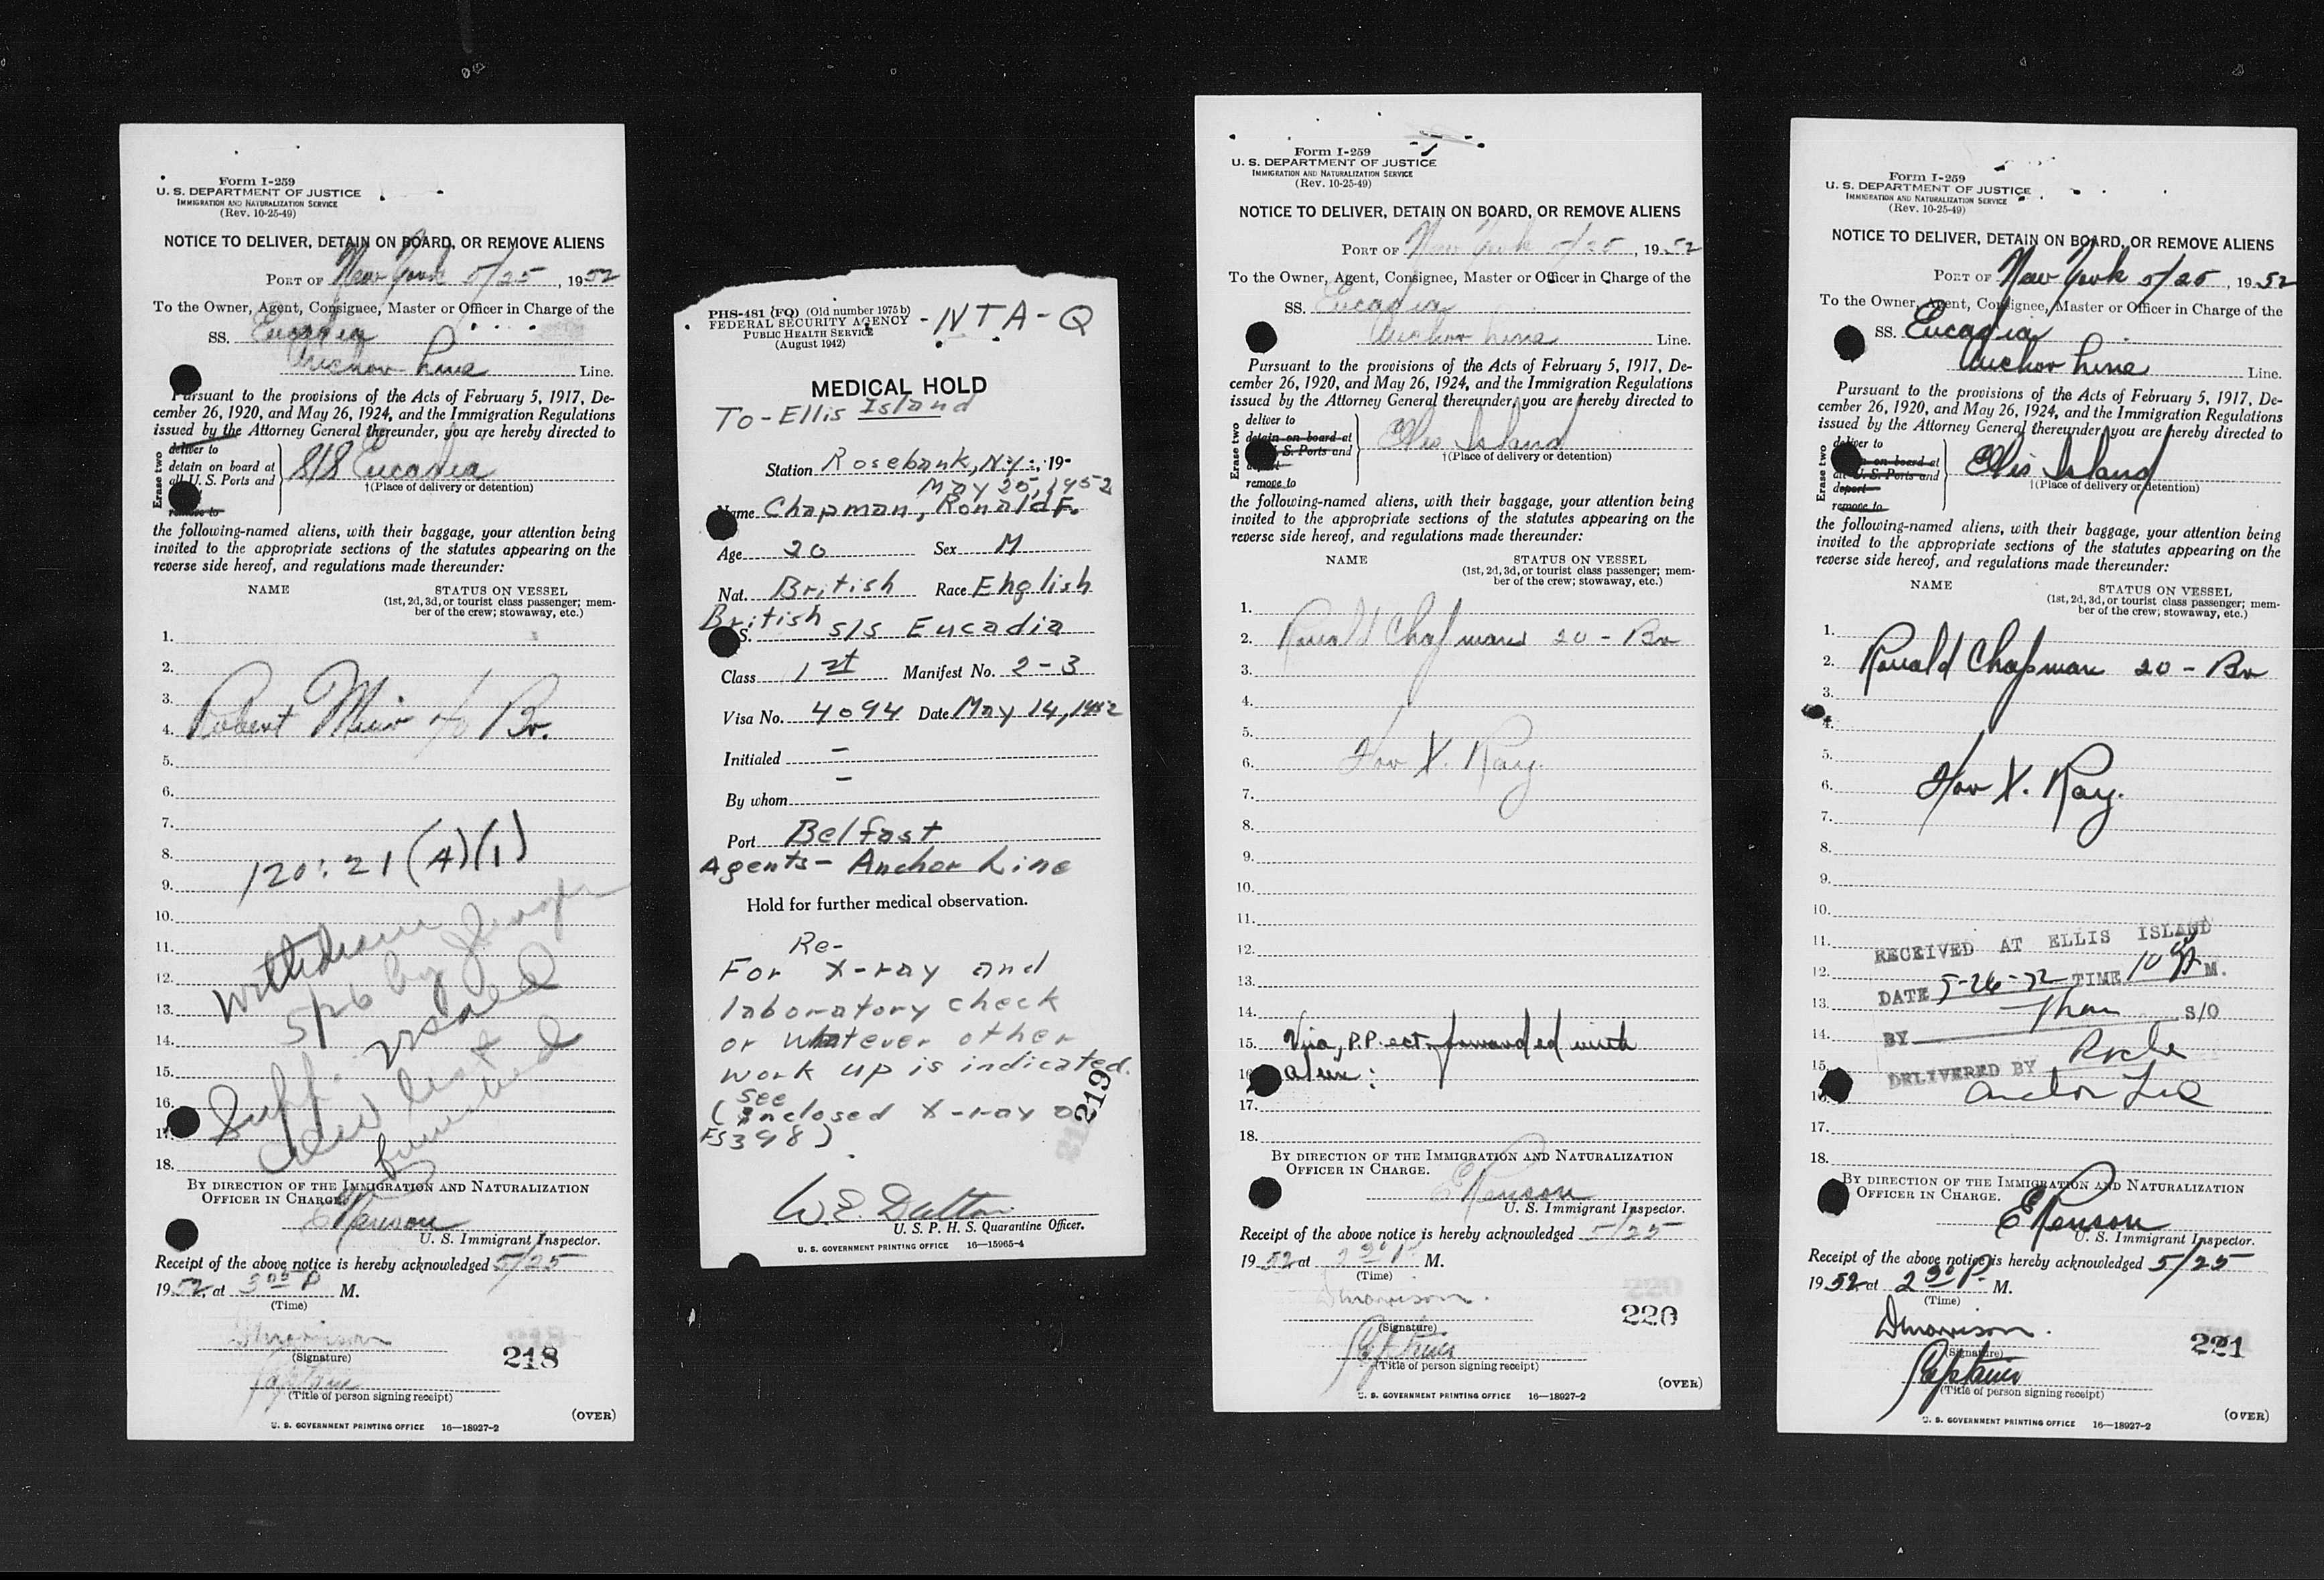 Form I-259
U. S. DEPARTMENT OF JUSTICE
IMMIGRATION AND NATURALIZATION SERVICE
(Rev. 10-25-49)
NOTICE TO DELIVER, DETAIN ON BOARD, OR REMOVE ALIENS
PORT OF New York 5/25, 1952
To the Owner, Agent, Consignee, Master or Officer in Charge of the
SS. Eucadia
Anchor Line Line.
Pursuant to the provisions of the Acts of February 5, 1917, De-
cember 26, 1920, and May 26, 1924, and the Immigration Regulations
issued by the Attorney General thereunder, you are hereby directed to
Erase two
deliver to
detain on board at
all U. S. Ports and
remove to
S/S Eucadia
†(Place of delivery or detention)
the following-named aliens, with their baggage, your attention being
invited to the appropriate sections of the statutes appearing on the
reverse side hereof, and regulations made thereunder:
NAME STATUS ON VESSEL
(1st, 2d, 3d, or tourist class passenger; mem-
ber of the crew; stowaway, etc.)
1.
2.
3.
4. Robert Muir 40 Br.
5.
6.
7.
8. 120:21(A)(1)
9.
10.
11. Withdrawn
12. 5/26 by
13.
14. issued
15. Supp.
16. Crew list
17. furnished
18.
BY DIRECTION OF THE IMMIGRATION AND NATURALIZATION
OFFICER IN CHARGE.
E Renson
U. S. Immigrant Inspector.
Receipt of the above notice is hereby acknowledged 5/25
1952, at 3 00 P M.
(Time)
D Morrison
(Signature)
218
Captain
(Title of person signing receipt)
(OVER)
U. S. GOVERNMENT PRINTING OFFICE 16—18927-2
PHS-481 (FQ) (Old number 1975 b)
FEDERAL SECURITY AGENCY
PUBLIC HEALTH SERVICE
(August 1942)
-NTA-Q
MEDICAL HOLD
To-Ellis Island
Station Rosebank, N.Y., 19-
May 25, 1952
Name Chapman, Ronald F.
Age 20 Sex M
Nat. British Race English
British
S. S/S Eucadia
Class 1st Manifest No. 2-3
Visa No. 4094 Date May 14, 1952
Initialed -
-
By whom
Port Belfast
Agents- Anchor Line
Hold for further medical observation.
Re-
For X-ray and
laboratory check
or whatever other
work up is indicated.
See
(Enclosed X-ray
FS398)
219
W.E. Dalton
U. S. P. H. S. Quarantine Officer.
U. S. GOVERNMENT PRINTING OFFICE 16—15965-4
Form I-259
U. S. DEPARTMENT OF JUSTICE
IMMIGRATION AND NATURALIZATION SERVICE
(Rev. 10-25-49)
NOTICE TO DELIVER, DETAIN ON BOARD, OR REMOVE ALIENS
PORT OF New York 5/25, 1952
To the Owner, Agent, Consignee, Master or Officer in Charge of the
SS. Eucadia
Anchor Line Line.
Pursuant to the provisions of the Acts of February 5, 1917, De-
cember 26, 1920, and May 26, 1924, and the Immigration Regulations
issued by the Attorney General thereunder, you are hereby directed to
Erase two
deliver to
detain on board at
S. Ports and
remove to
Ellis Island
†(Place of delivery or detention)
the following-named aliens, with their baggage, your attention being
invited to the appropriate sections of the statutes appearing on the
reverse side hereof, and regulations made thereunder:
NAME STATUS ON VESSEL
(1st, 2d, 3d, or tourist class passenger; mem-
ber of the crew; stowaway, etc.)
1.
2. Ronald Chapman 20 - Br
3.
4.
5.
6. For X. Ray.
7.
8.
9.
10.
11.
12.
13.
14.
15. Visa, P.P. ect. forwarded with
16. alien:
17.
18.
BY DIRECTION OF THE IMMIGRATION AND NATURALIZATION
OFFICER IN CHARGE.
E Renson
U. S. Immigrant Inspector.
Receipt of the above notice is hereby acknowledged 5/25
1952 at 2 30 P. M.
(Time)
D Morrison.
220
(Signature)
Captain
(Title of person signing receipt)
(OVER)
U. S. GOVERNMENT PRINTING OFFICE 16—18927-2
Form I-259
U. S. DEPARTMENT OF JUSTICE
IMMIGRATION AND NATURALIZATION SERVICE
(Rev. 10-25-49)
NOTICE TO DELIVER, DETAIN ON BOARD, OR REMOVE ALIENS
PORT OF New York 5/25, 1952
To the Owner, Agent, Consignee, Master or Officer in Charge of the
SS. Eucadia
Anchor Line Line.
Pursuant to the provisions of the Acts of February 5, 1917, De-
cember 26, 1920, and May 26, 1924, and the Immigration Regulations
issued by the Attorney General thereunder, you are hereby directed to
Erase two
deliver to
on board at
all U. S. Ports and
deport
remove to
Ellis Island
†(Place of delivery or detention)
the following-named aliens, with their baggage, your attention being
invited to the appropriate sections of the statutes appearing on the
reverse side hereof, and regulations made thereunder:
NAME STATUS ON VESSEL
(1st, 2d, 3d, or tourist class passenger; mem-
ber of the crew; stowaway, etc.)
1.
2. Ronald Chapman 20 - Br
3.
4.
5.
6. For X. Ray.
7.
8.
9.
10.
11. RECEIVED AT ELLIS ISLAND
12. DATE 5-26-52 TIME 10 M.
13. S/O
14. BY
15. DELIVERED BY
16. Anchor Line
17.
18.
BY DIRECTION OF THE IMMIGRATION AND NATURALIZATION
OFFICER IN CHARGE.
E Renson
U. S. Immigrant Inspector.
Receipt of the above notice is hereby acknowledged 5/25
1952 at 2 30 P. M.
(Time)
D Morrison.
221
(Signature)
Captain
(Title of person signing receipt)
(OVER)
U. S. GOVERNMENT PRINTING OFFICE 16—18927-2